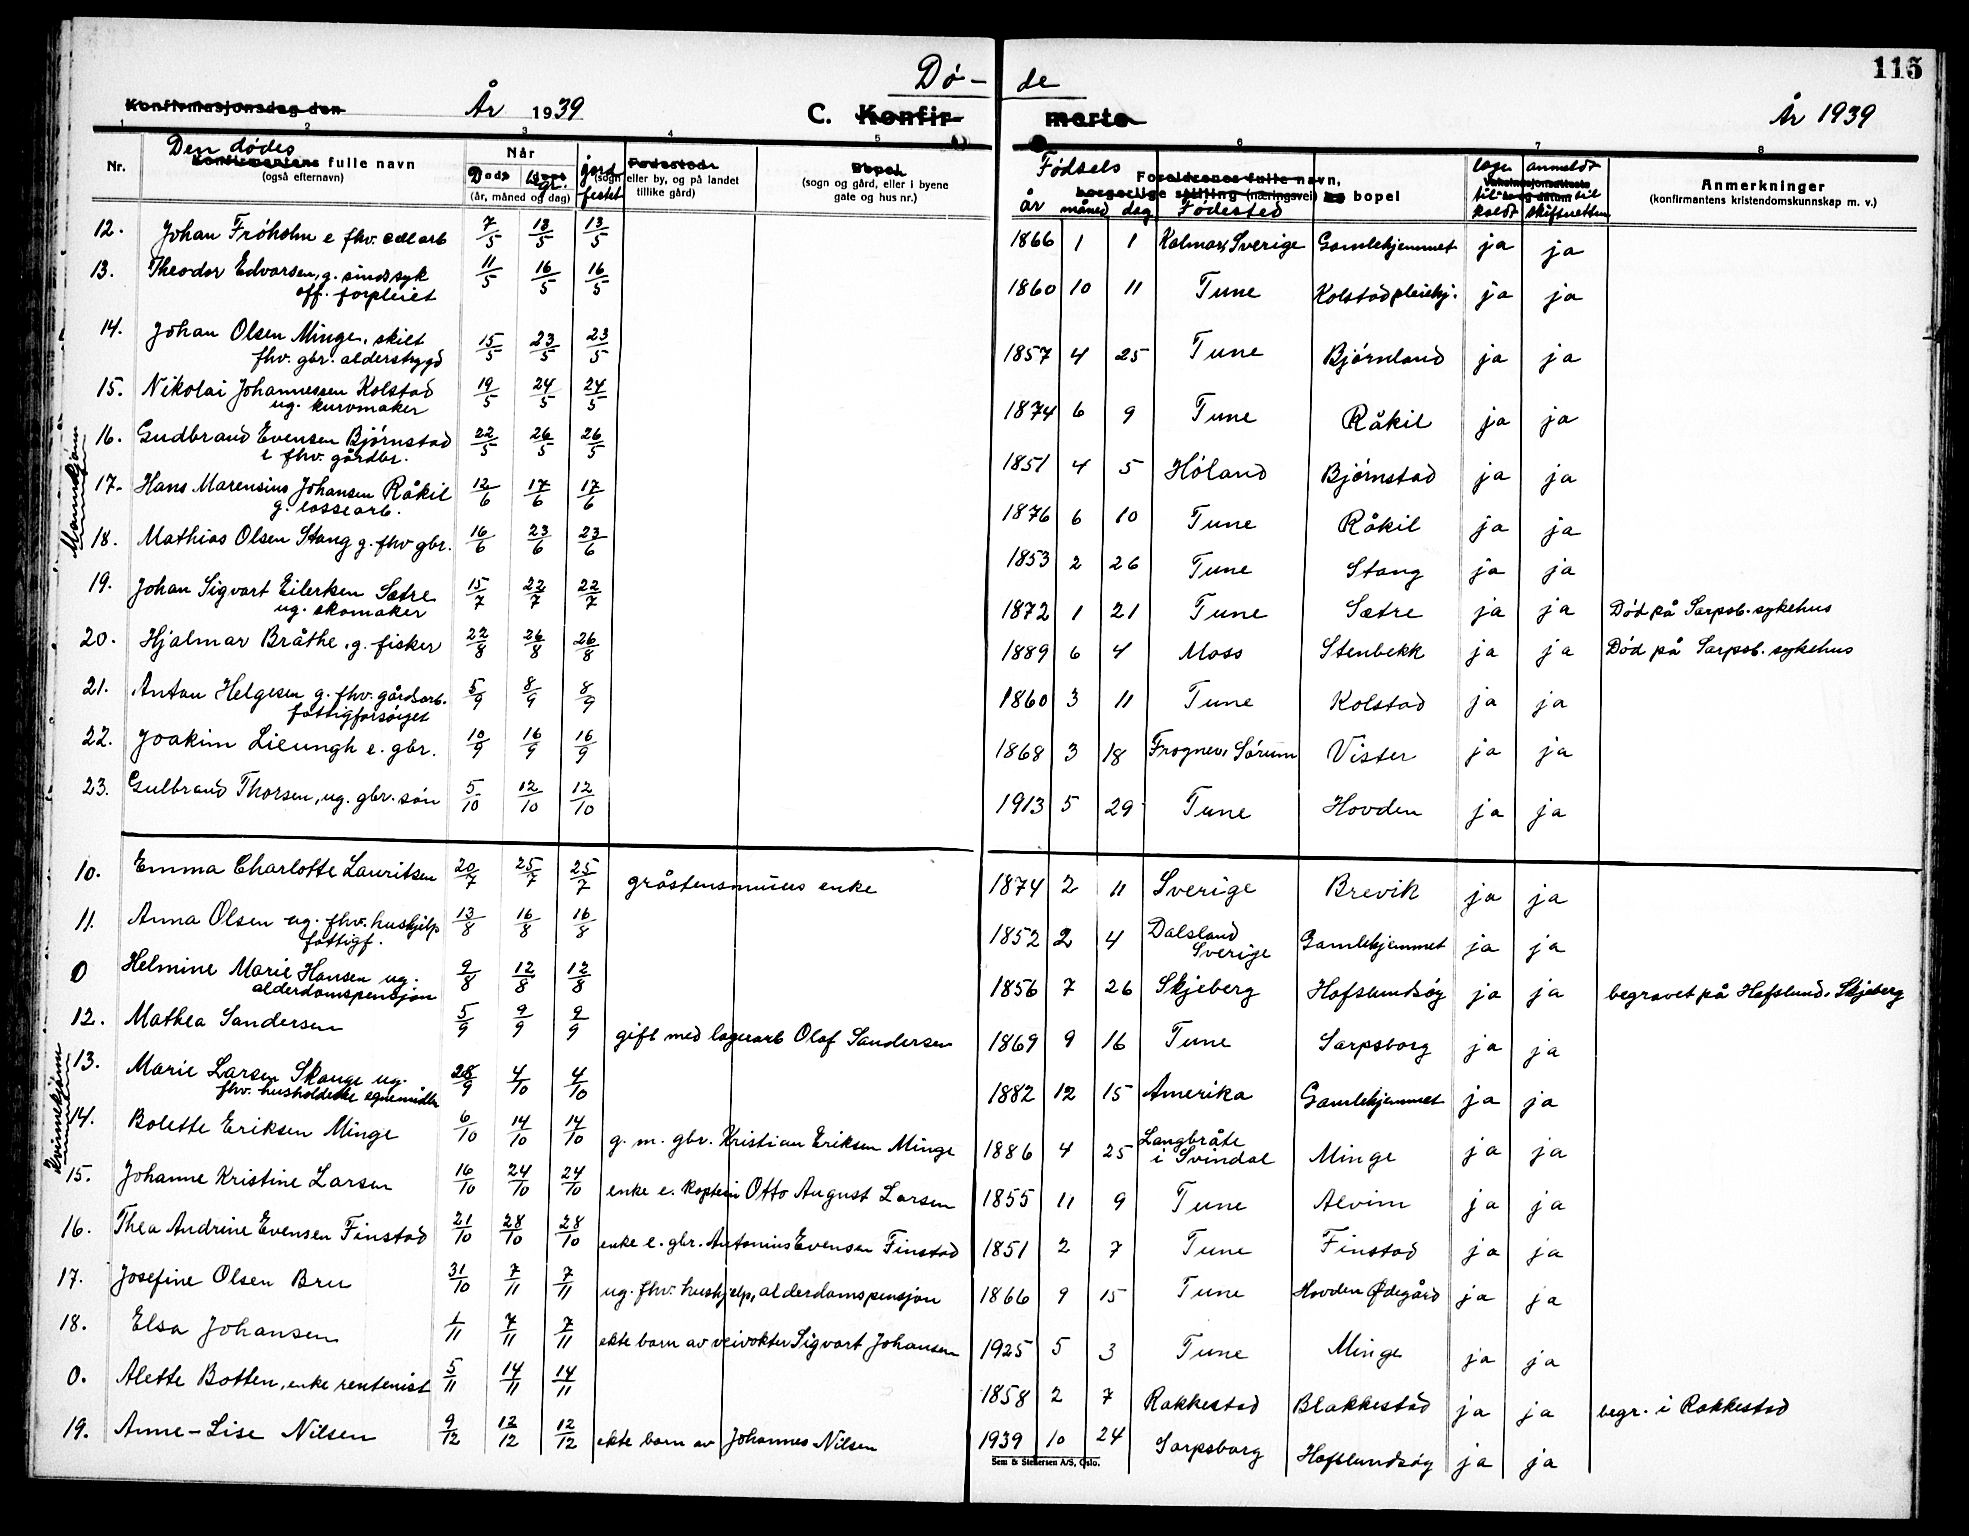 Dø- de
115
Konfirmasjonsdag den År 1939 C. Konfir- marte År 1939
1 2 3 4 5 6 7 8
Nr.
Den dødes
Konfirmantens fulle navn
(også efternavn)
Når
Død
gr.
(år, måned og dag)
jordfestet
Fødested
(sogn eller by, og på landet
tillike gård)
Bopel
(sogn og gård, eller i byene
gate og hus nr.)
Fødsels
år måned dag
Foreldrenes fulle navn,
borgerlige stilling (næringsvei) og bopel
Fødested
anmeldt
til
skifteretten
Anmerkninger
(konfirmantens kristendomskunnskap m. v.)
Mannkjønn
12. Johan Frøholm e fhv. cell.arb 7/5 13/5 13/5 1866 1 1 Kalmar, Sverige Gamlehjemmet ja ja
13. Theodor Edvarsen, g. sindssyk 11/5 16/5 16/5 1860 10 11 Tune Kolstad pleiehj. ja ja
off. forpleiet
14. Johan Olsen Minge, skilt 15/5 23/5 23/5 1857 4 25 Tune Bjørnland ja ja
fhv. gbr. alderstrygd
15. Nikolai Johannessen Kolstad 19/5 24/5 24/5 1874 6 9 Tune Råkil ja ja
ug. kurvmaker
16. Gudbrand Evensen Bjørnstad 22/5 26/5 26/5 1851 4 5 Høland Bjørnstad ja ja
e fhv. gårdbr.
17. Hans Marensius Johansen Råkil 12/6 17/6 17/6 1876 6 10 Tune Råkil ja ja
g. lossearb.
18. Mathias Olsen Stang g. fhv gbr. 16/6 23/6 23/6 1853 2 26 Tune Stang ja ja
19. Johan Sigvart Eilertsen Sætre 15/7 22/7 22/7 1872 1 21 Tune Sætre ja ja Død på Sarpsb. sykehus
ug. skomaker
20. Hjalmar Bråthe, g. fisker 22/8 26/8 26/8 1889 6 4 Moss Stenbekk ja ja Død på Sarpsb. sykehus
21. Anton Helgesen g. fhv. gårdsarb. 5/9 8/9 8/9 1860 3 11 Tune Kolstad ja ja
fattigforsørget
22. Joakim Lieungh e. gbr. 10/9 16/9 16/9 1868 3 18 Frogner, Sørum Vister ja ja
23. Gulbrand Thorsen, ug. gbr. søn 5/10 12/10 12/10 1913 5 29 Tune Hovden ja ja
Kvinnekjønn
10. Emma Charlotte Lauritsen 20/7 25/7 25/7 gråstensmurers enke 1874 2 11 Sverige Brevik ja ja
11. Anna Olsen ug. fhv. hushjelp 13/8 16/8 16/8 1852 2 4 Dalsland Sverige Gamlehjemmet ja ja
fattigf.
0 Helmine Marie Hansen ug. 9/8 12/8 12/8 1856 7 26 Skjeberg Hafslundsøy ja ja begravet på Hafslund, Skjeberg
alderdomspensjon
12. Mathea Sandersen 5/9 9/9 9/9 gift med lagerarb Olaf Sandersen 1869 9 16 Tune Sarpsborg ja ja
13. Marie Larsen Skauge ug. 28/9 4/10 4/10 1882 12 15 Amerika Gamlehjemmet ja ja
fhv. husholderske egne midler
14. Bolette Eriksen Minge 6/10 14/10 14/10 g. m. gbr. Kristian Eriksen Minge 1886 4 25 Langbråte i Svindal Minge ja ja
15. Johanne Kristine Larsen 16/10 24/10 24/10 enke e. kaptein Otto August Larsen 1855 11 9 Tune Alvim ja ja
16. Thea Andrine Evensen Finstad 21/10 28/10 28/10 enke e. gbr. Antonius Evensen Finstad 1851 2 7 Tune Finstad ja ja
17. Josefine Olsen Bru 31/10 7/11 7/11 ug. fhv. hushjelp, alderdomspensjon 1866 9 15 Tune Hovden Ødegård ja ja
18. Elsa Johansen 1/11 7/11 7/11 ekte barn av veivokter Sigvart Johansen 1925 5 3 Tune Minge ja ja
0. Alette Botten, enke rentenist 5/11 14/11 14/11 1858 2 7 Rakkestad Blakkestad ja ja begr. i Rakkestad
19. Anne-Lise Nilsen 9/12 12/12 12/12 ekte barn av Johannes Nilsen 1939 10 24 Sarpsborg Hafslundsøy ja ja
Sem & Stenersen A/S, Oslo.